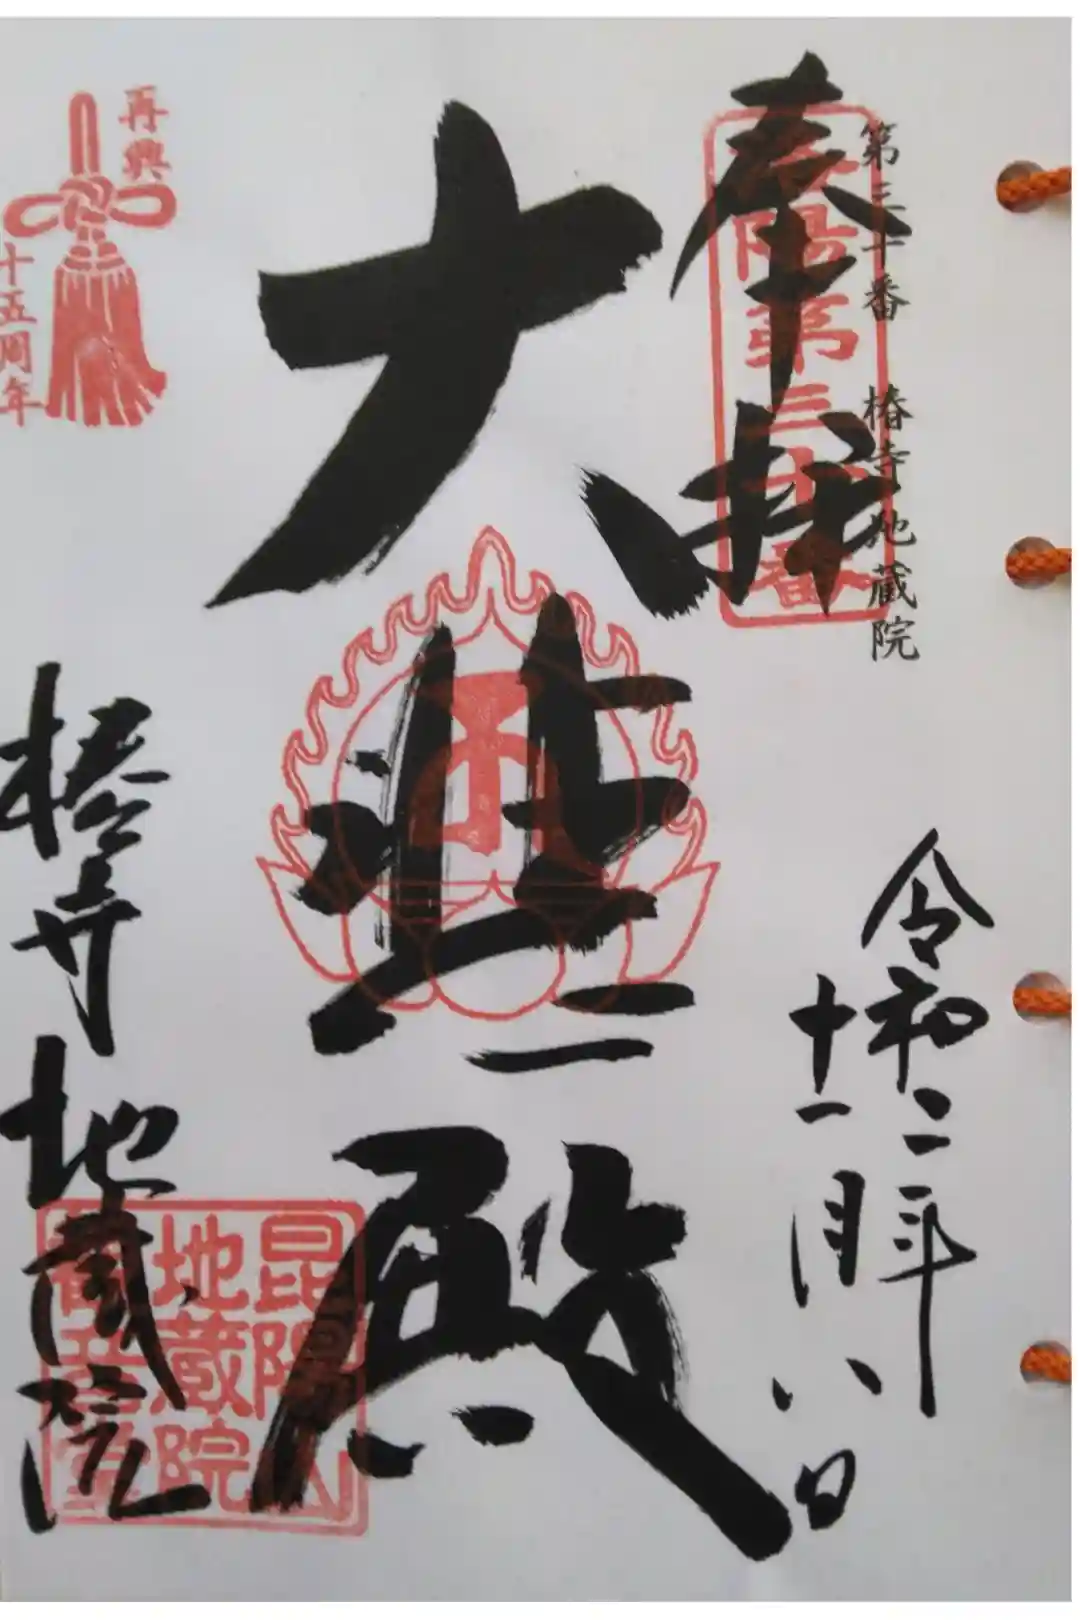 第三十番　椿寺地蔵院
奉拝
洛陽第三十番
令和二年
十一月八日
大悲殿
昆陽山
地蔵院
観音堂
再興
十五周年
椿寺
地蔵院